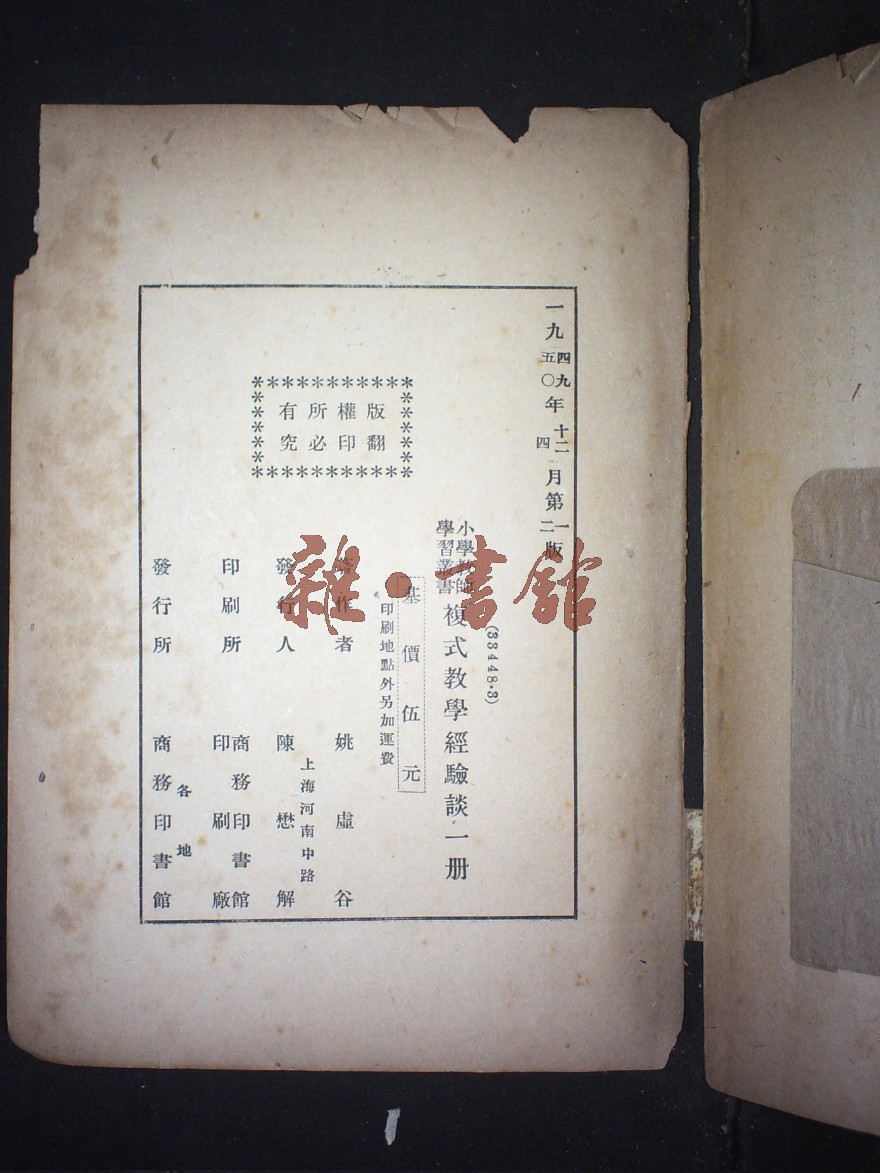 一九四九年十二月第一版
五〇 四 二
(33448·3)
小學教師
學習叢書 複式教學經驗談一册
基價伍元
印刷地點外另加運費
版權所有
翻印必究
著作者 姚虛谷
上海河南中路
發行人 陳懋解
印刷所 商務印書館
印刷廠
各地
發行所 商務印書館
雜·書館